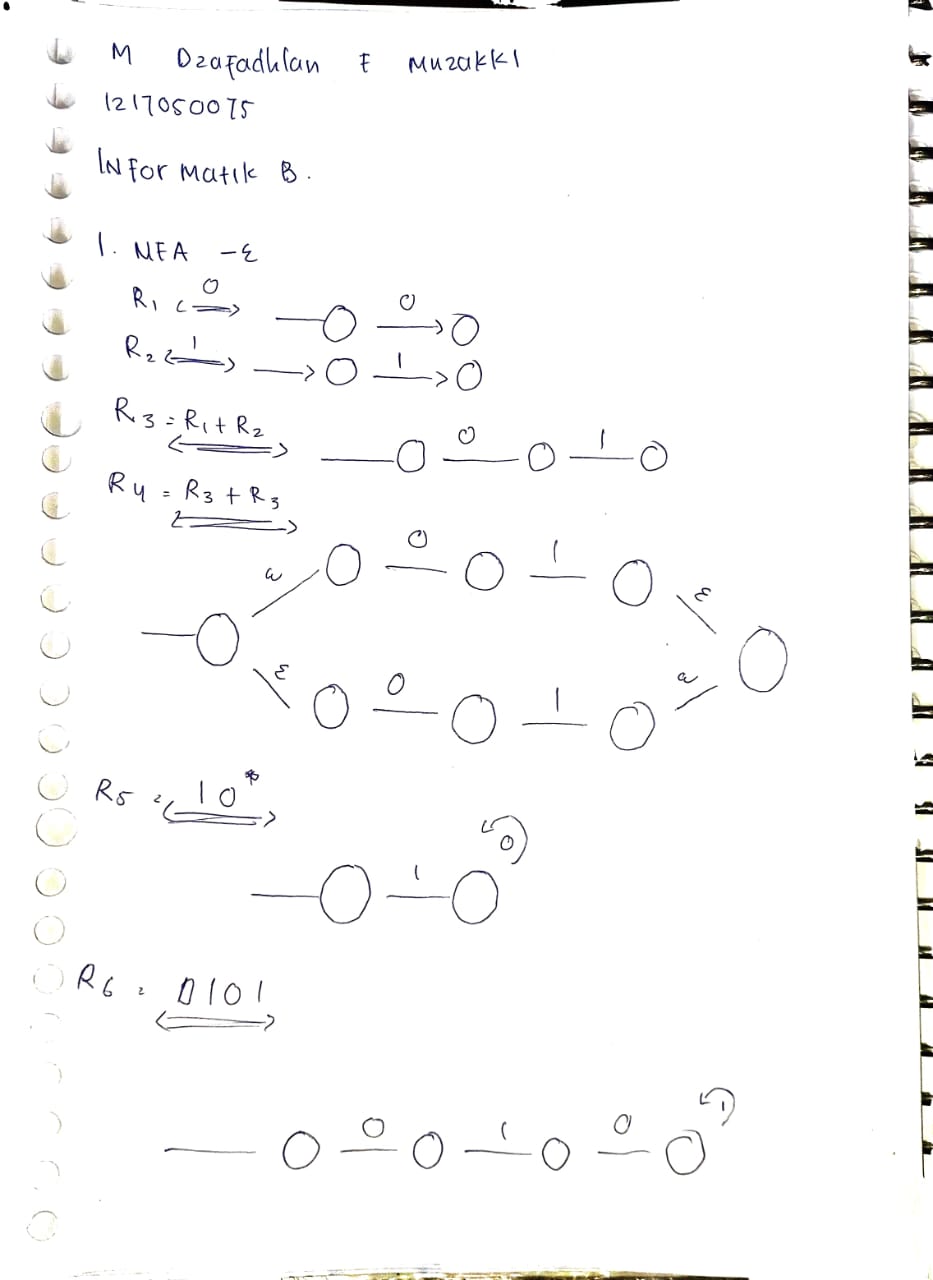 M Dzafadhlan F Muzakki
1217050075
INforMatik B.
1. NFA -ε
R1 0 0
R2 1 1
R3 = R1 + R2 0 1
R4 = R3 + R3
ε 0 1 ε
ε 0 1 ε
R5 = 10*
1 0
R6 = 0101
0 1 0 1